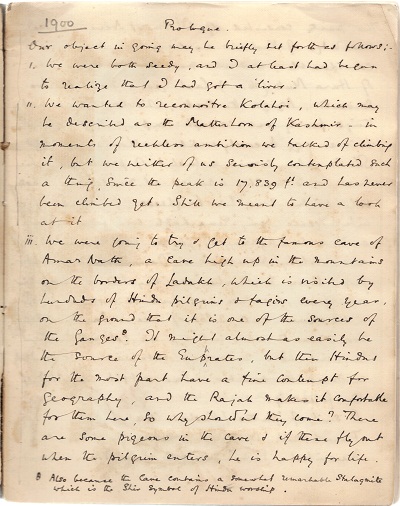 1900
Prologue.
Our object in going may be briefly set forth as follows:-
i. We were both seedy, and I at least had begun
to realize that I had got a 'liver'
ii. We wanted to reconnoitre Kolahoi, which may
be described as the Matterhorn of Kashmir - in
moments of reckless ambition we talked of climbing
it, but we neither of us seriously contemplated such
a thing, since the peak is 17,839 ft and has never
been climbed yet. Still we meant to have a look
at it
iii. We were going to try & get to the famous cave of
Amar Nath, a cave high up in the mountains
on the borders of Ladakh, which is visited by
hundreds of Hindu pilgrims & fagirs every year,
on the ground that it is one of the sources of
the Ganges⁰. It might almost as easily be
the source of the Euphrates, but then Hindus
for the most part have a fine contempt for
geography, and the Rajah makes it comfortable
for them here, so why shouldn't they come? There
are some pigeons in the cave & if these fly out
when the pilgrim enters, he is happy for life.
θ Also because the Cave contains a somewhat remarkable Stalagmite
which is the Shiv symbol of Hindu worship.